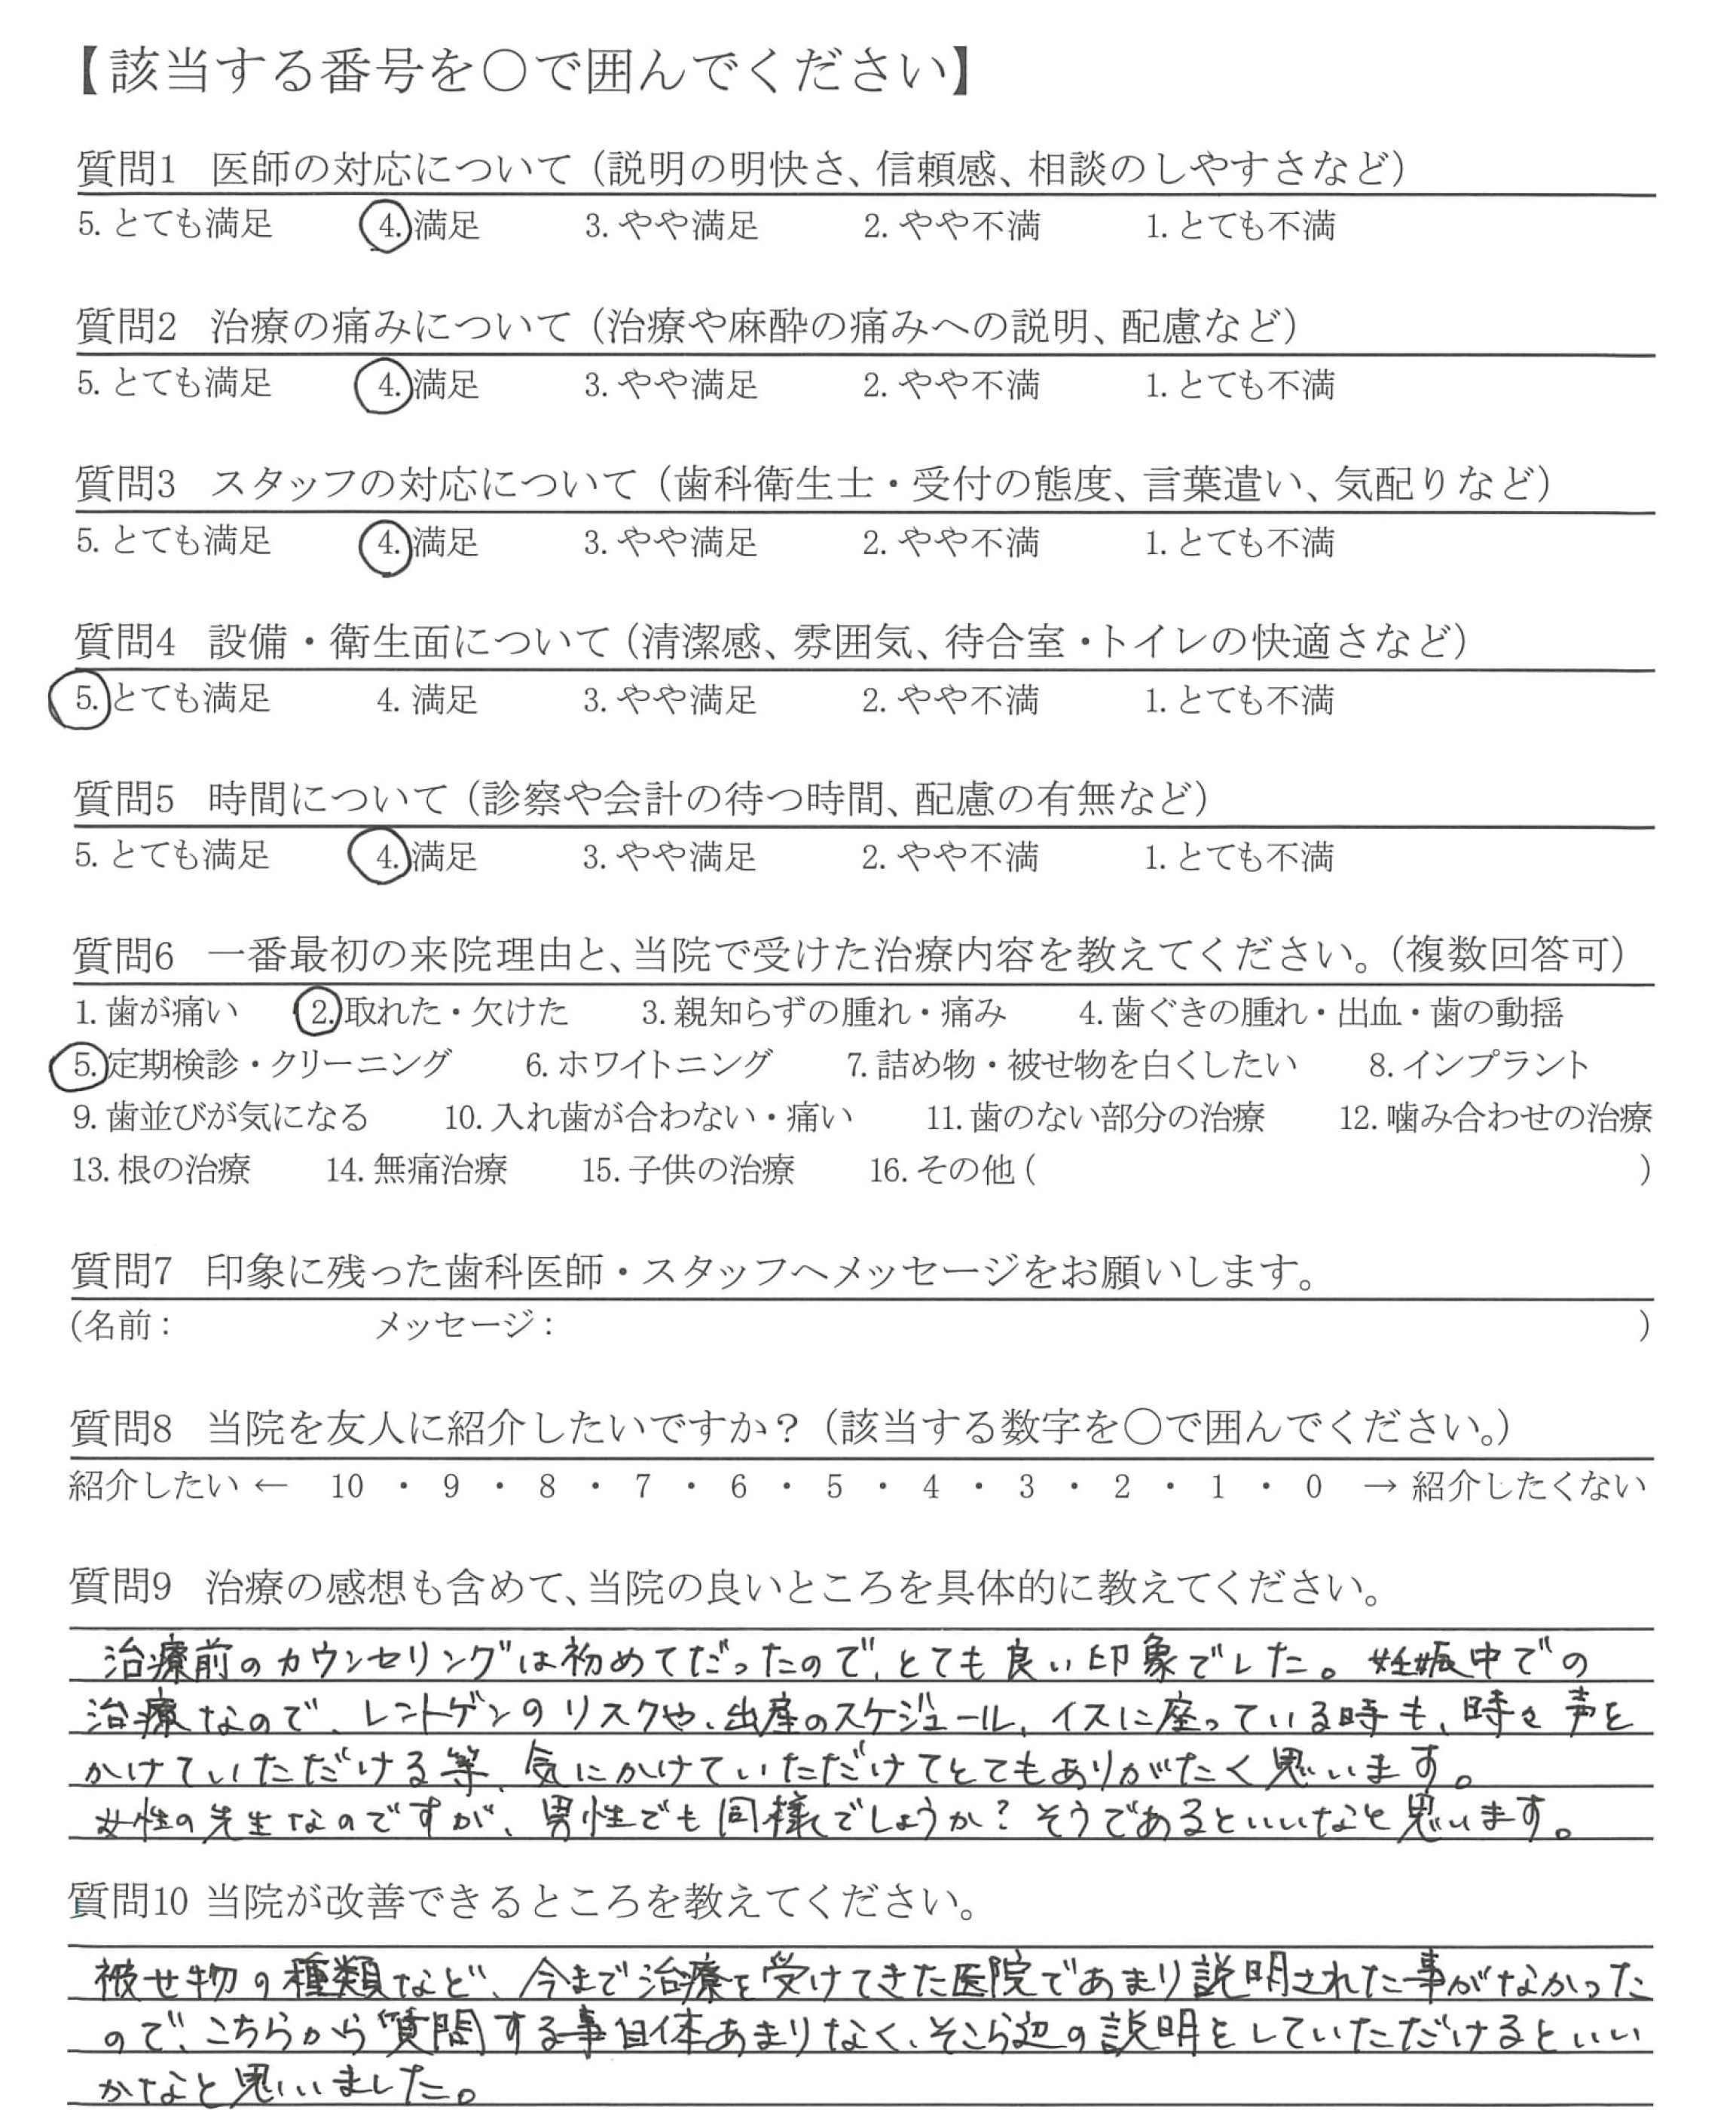 【該当する番号を○で囲んでください】
質問1 医師の対応について（説明の明快さ、信頼感、相談のしやすさなど）
5. とても満足 4. 満足 3. やや満足 2. やや不満 1. とても不満
質問2 治療の痛みについて（治療や麻酔の痛みへの説明、配慮など）
5. とても満足 4. 満足 3. やや満足 2. やや不満 1. とても不満
質問3 スタッフの対応について（歯科衛生士・受付の態度、言葉遣い、気配りなど）
5. とても満足 4. 満足 3. やや満足 2. やや不満 1. とても不満
質問4 設備・衛生面について（清潔感、雰囲気、待合室・トイレの快適さなど）
5. とても満足 4. 満足 3. やや満足 2. やや不満 1. とても不満
質問5 時間について（診察や会計の待つ時間、配慮の有無など）
5. とても満足 4. 満足 3. やや満足 2. やや不満 1. とても不満
質問6 一番最初の来院理由と、当院で受けた治療内容を教えてください。（複数回答可）
1. 歯が痛い 2. 取れた・欠けた 3. 親知らずの腫れ・痛み 4. 歯ぐきの腫れ・出血・歯の動揺
5. 定期検診・クリーニング 6. ホワイトニング 7. 詰め物・被せ物を白くしたい 8. インプラント
9. 歯並びが気になる 10. 入れ歯が合わない・痛い 11. 歯のない部分の治療 12. 噛み合わせの治療
13. 根の治療 14. 無痛治療 15. 子供の治療 16. その他 ( )
質問7 印象に残った歯科医師・スタッフへメッセージをお願いします。
(名前： メッセージ： )
質問8 当院を友人に紹介したいですか？（該当する数字を○で囲んでください。）
紹介したい ← 10 ・ 9 ・ 8 ・ 7 ・ 6 ・ 5 ・ 4 ・ 3 ・ 2 ・ 1 ・ 0 → 紹介したくない
質問9 治療の感想も含めて、当院の良いところを具体的に教えてください。
治療前のカウンセリングは初めてだったので、とても良い印象でした。妊娠中での
治療なので、レントゲンのリスクや、出産のスケジュール、イスに座っている時も、時々声を
かけていただける等、気にかけていただけてとてもありがたく思います。
女性の先生なのですが、男性でも同様でしょうか？そうであるといいなと思います。
質問10 当院が改善できるところを教えてください。
被せ物の種類など、今まで治療を受けてきた医院であまり説明された事がなかった
ので、こちらから質問する事自体あまりなく、そこら辺の説明をしていただけるといい
かなと思いました。